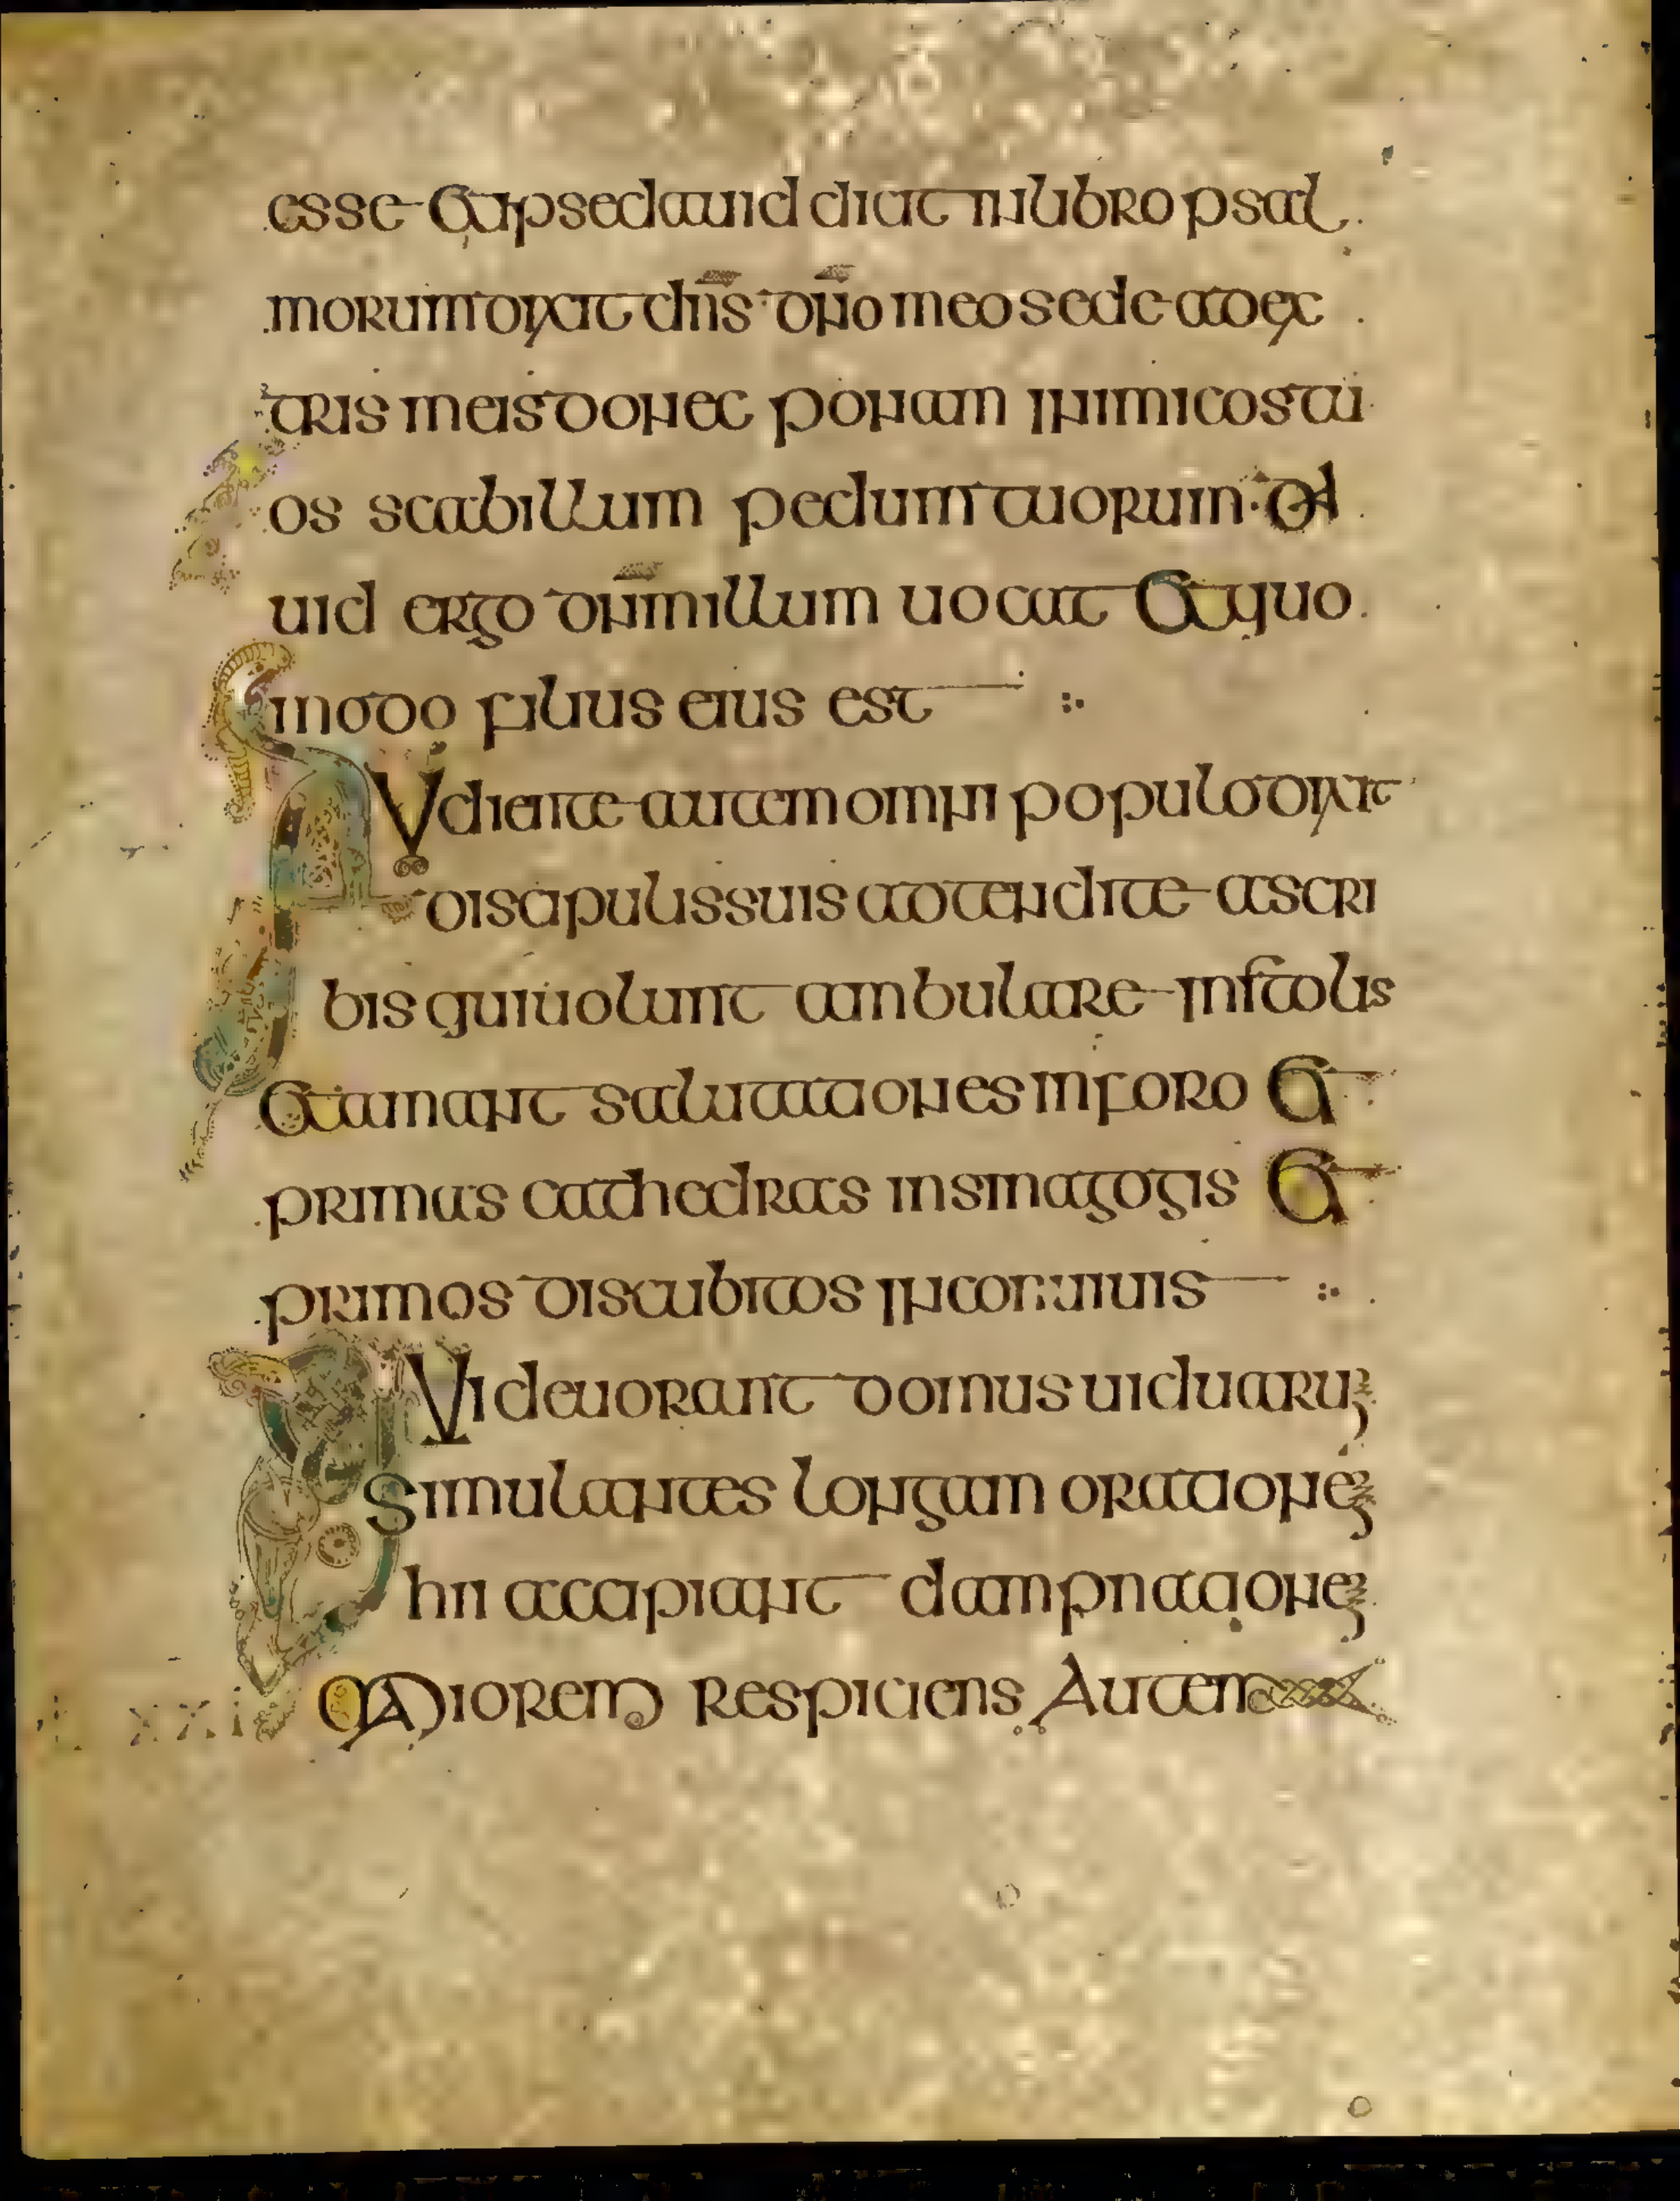 esse et ipse dauid dicit in libro psal
morum dixit dns̄ dno̅ meo sede a dex
tris meis donec ponam inimicos tu
os scabillum pedum tuorum d
uid ergo dnm̅ illum uocat et quo
modo filius eius est
Audiente autem omni populo dixit
discipulis suis adtendite a scri
bis qui uolunt ambulare in stolis
et amant salutationes in foro et
primas cathedras in sinagogis et
primos discubitos in conuiuiis
Qui deuorant domus uiduarum
simulantes longam orationem
hii accipiant dampnationem
maiorem Respiciens Autem